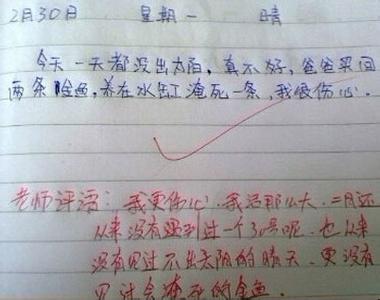 2月30日 星期一 晴
今天一天都没出太阳,真不好,爸爸买回
两条金鱼,养在水缸淹死一条,我很伤心.
老师评语:我更伤心.我活那么大.二月还
从来没有遇到过一个30号呢.也从来
没有见过不出太阳的晴天.更没有
见过会淹死的金鱼.